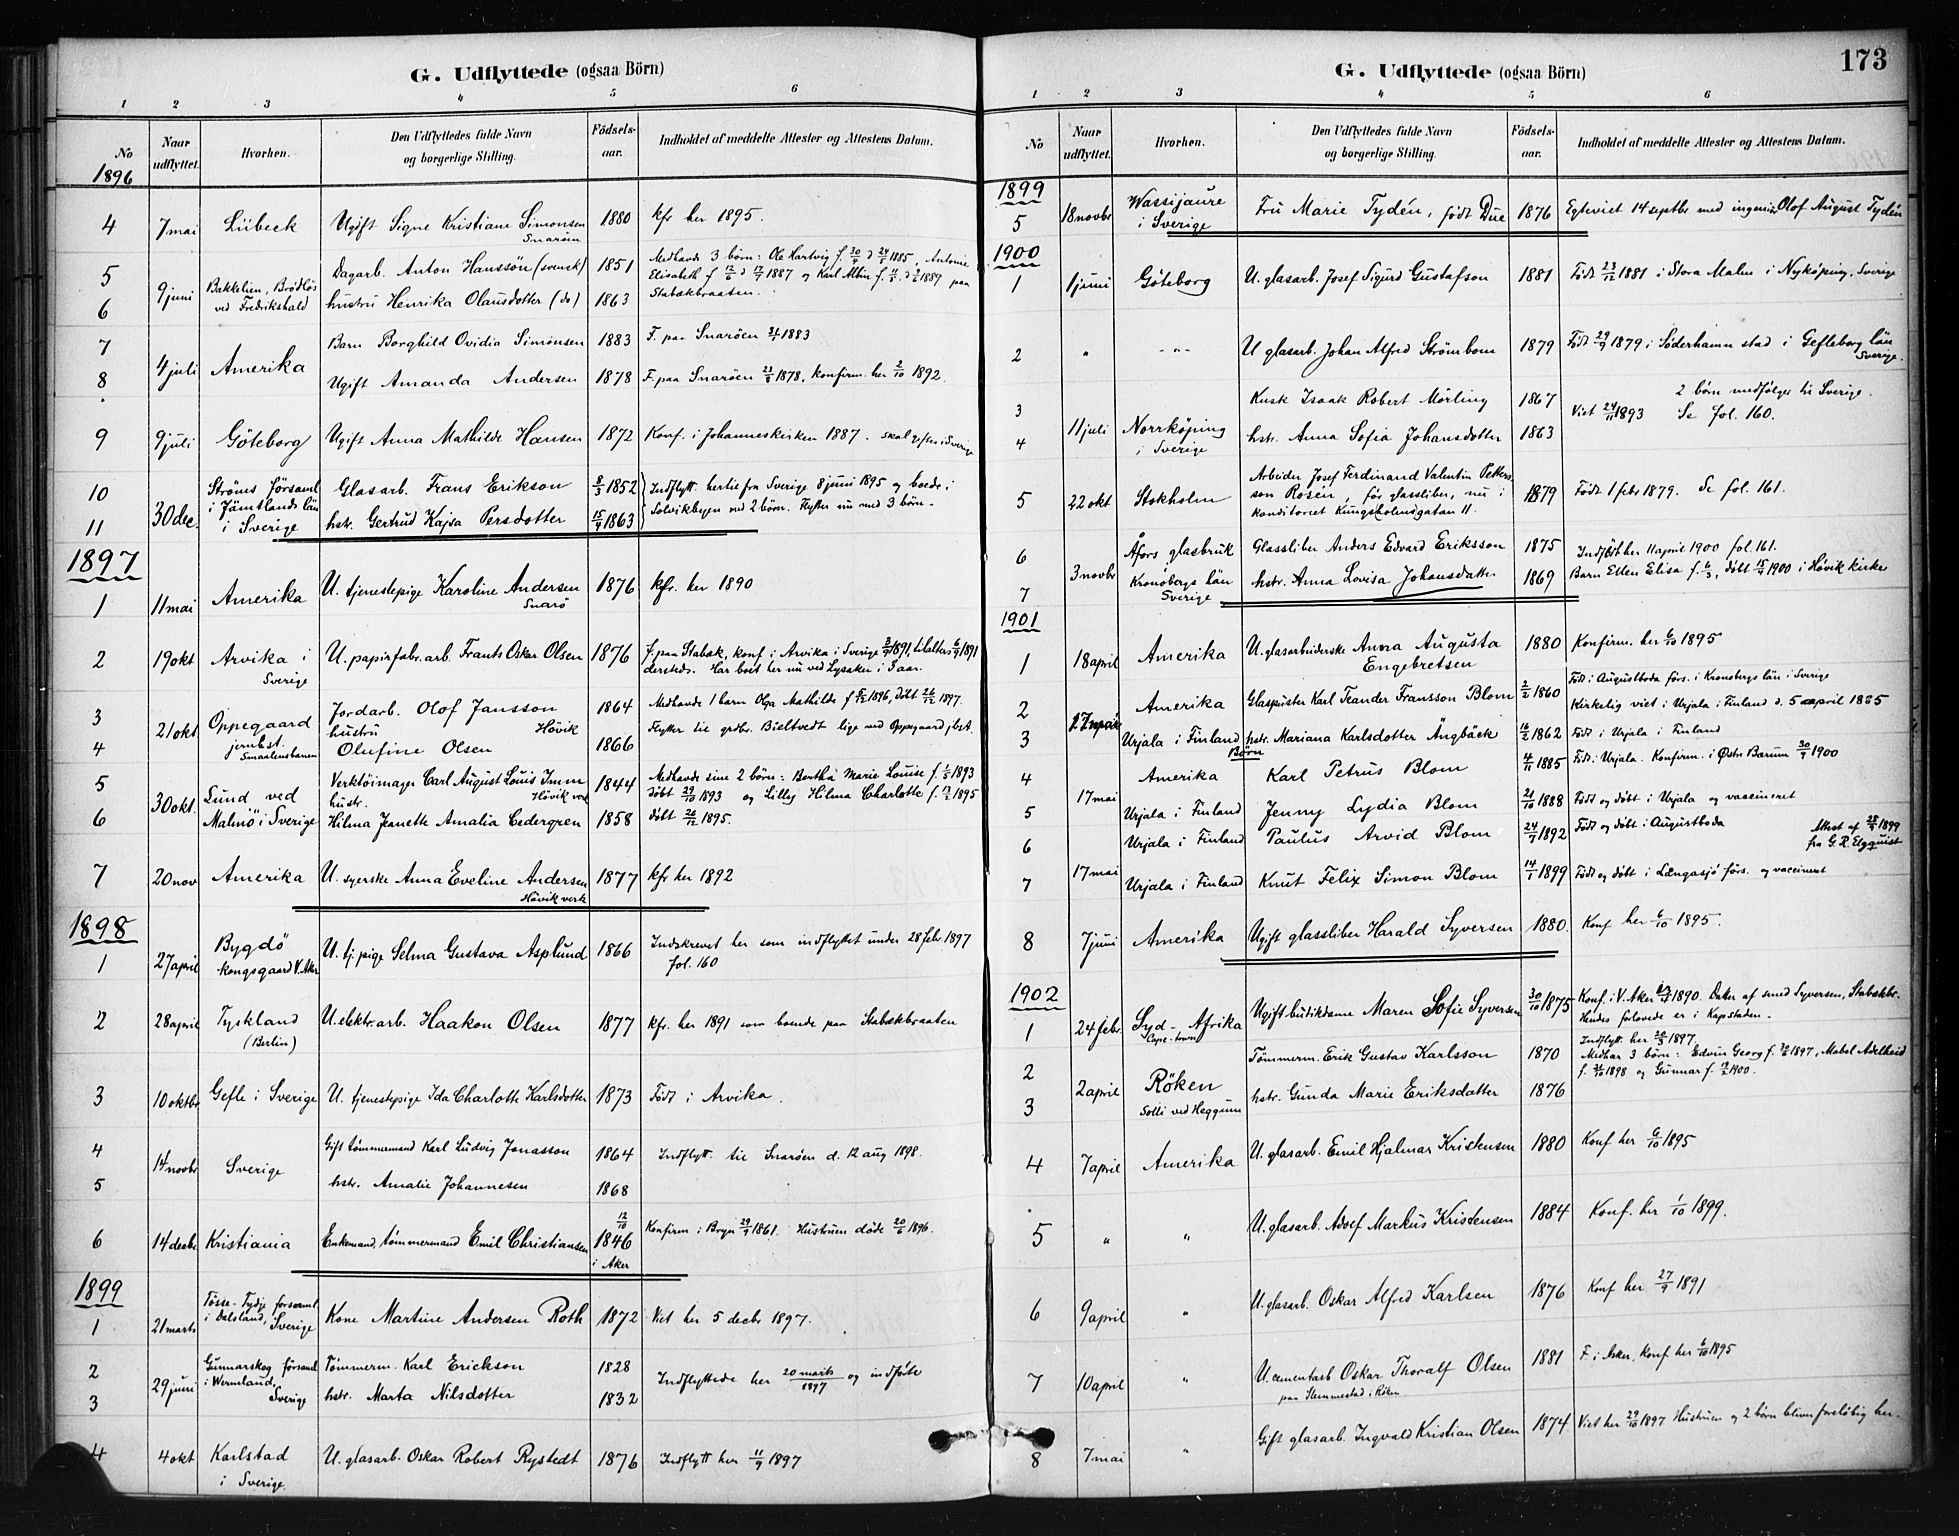 G. Udflyttede (ogsaa Börn)
1 2 3 4 5 6
No Naar udflyttet. Hvorhen. Den Udflyttedes fulde Navn og borgerlige Stilling. Fødsels-aar. Indholdet af meddelte Attester og Attestens Datum.
1896
4 7 mai Lübeck Ugift Signe Kristiane Simonsen 1880 kfr her 1895.
Snaröen
5 Dagarb. Anton Hanssön (svensk) 1851 Medhavde 3 börn: Ole Hartvig f. 30/4 d 24/5 1885, Antonie
9 juni Bakkelien, Brödlös Elisabeth f 12/6 d 17/7 1887 og Karl Albin f. 11/5. d 9/6 1889 paa
6 ved Fredrikshald hustru Henrika Olausdotter (do) 1863 Stabækbraaten.
7 Barn Borghild Ovidia Simonsen 1883 F. paa Snaröen 21/1 1883
4 juli Amerika
8 Ugift Amanda Andersen 1878 F. paa Snaröen 23/8 1878, konfirm. her 2/10 1892.
9 9 juli Göteborg Ugift Anna Mathilde Hansen 1872 Konf. i Johanneskirken 1887 - skal giftes i Sverige
10 Ströms församl Glasarb. Frans Erikson 8/3 1852 Indflytt. hertil fra Sverige 8 juni 1895 og boede i
i Jämtlands län
11 30 dec. i Sverige hstr. Gertrud Kajsa Persdotter 15/9 1863 Solvikbygn med 2 börn. Flytter nu med 3 börn.
1897
1 11 mai Amerika U. tjenestepige Karoline Andersen 1876 kfr. her 1890
Snarö
2 19 okt Arvika i U. papirfabr. arb. Frants Oskar Olsen 1876 f. paa Stabæk, konf i Arvika i Sverige 3/5 1891, tilaltars 6/9 1891
Sverige dersteds. Har boet her nu ved Lysaker i 3 aar.
3 Oppegaard Jordarb. Olof Jansson 1864 Medhavde 1 barn Olga Mathilde f 5/12 1896, döbt 26/12 1897.
21 okt hustru Hövik Flytter til grdbr. Bieltvedt lige ved Oppegaard jbst.
4 jernbst. Olufine Olsen 1866
Smaalensbanen
5 Verktöimager Carl August Louis Imm 1844 Medhavde sine 2 börn: Bertha Marie Louise f. 1/5 1893
30 okt. Lund ved hustr. Hövik verk döbt 29/10 1893 og Lilly Hilma Charlotte f. 13/2 1895
6 Malmö i Sverige Hilma Jeanette Amalia Cedergren 1858 döbt 26/12 1895.
7 20 nov Amerika U. syerske Anna Eveline Andersen 1877 kfr her 1892
Hövik verk
1898
1 27 april Bygdö U. tj. pige Selma Gustava Asplund 1866 Indskrevet her som indflyttet under 28 febr. 1897
kongsgaard V. Aker fol. 160
2 28 april Tyskland U. elektr. arb. Haakon Olsen 1877 kfr. her 1891 som boende paa Stabækbraaten
(Berlin)
3 10 oktbr Gefle i Sverige U. tjenestepige Ida Charlotte Karlsdotter 1873 Född i Arvika.
4 Gift tömmermand Karl Ludvig Jonasson 1864 Indflytt. til Snaröen d. 12 aug 1898.
14 novbr Sverige
5 hstr. Amalie Johannesen 1868
12/10
6 14 decbr Kristiania Enkemand, tömmermand Emil Christiansen 1846 Konfirm i Bryn 29/9 1861. Hustruen döde 20/6 1896.
i Aker
1899
1 21 marts Tösse-Tydje forsaml. Kone Martine Andersen Roth 1872 Viet her 5 decbr 1897.
i Dalsland, Sverige
2 Gunnarskog församl Tömmerm. Karl Erickson 1828
29 juni i Wermland, Indflyttede her 20 marts/1897 og indförte
3 Sverige hstr. Marta Nilsdotter 1832
4 4 okt Karlstad U. glasarb. Oskar Robert Rystedt 1876 Indflytt her 11/9 1897
i Sverige
173
G. Udflyttede (ogsaa Börn)
1 2 3 4 5 6
No Naar udflyttet. Hvorhen. Den Udflyttedes fulde Navn og borgerlige Stilling. Fødsels-aar. Indholdet af meddelte Attester og Attestens Datum.
1899
5 18 novbr Wassijaure Fru Marie Tydén, født Due 1876 Egteviet 14 septbr med ingeniør Olof August Tydén
i Sverige
1900
1 1 juni Göteborg U. glasarb. Josef Sigurd Gustafson 1881 Född 23/12 1881 i Stora Malm i Nyköping, Sverige
2 " - " - U glasarb. Johan Alfred Strömbom 1879 Född 29/9 1879 i Söderhamn stad i Gefleborg län
Sverige.
3 Kusk Isaak Robert Mörling 1867 2 börn medfölger til Sverige.
11 juli Norrköping Viet 24/11 1893 Se fol. 160.
4 i Sverige hstr. Anna Sofia Johansdotter 1863
5 22 okt Stokholm Arbeider Josef Ferdinand Valentin Petters
son Rosén, för glassliber, nu i 1879 Född 1 febr 1879. Se fol. 161.
konditoriet Kungsholmsgatan 11.
6 Åfors glasbruk Glassliber Anders Edvard Eriksson 1875 Indförther 11 april 1900 fol. 161.
3 novbr Kronobergs län
7 Sverige hstr. Anna Lovisa Johansdatter 1869 Barn Ellen Elisa f. 6/3, döbt 15/4 1900 i Hövik kirke
1901
1 18 april Amerika U. glasarbeiderske Anna Augusta 1880 Konfirm. her 6/10 1895
Engebretsen
2 Amerika Glaspuster Karl Teander Fransson Blom 2/2 1860 Född i Augustboda förs. i Kronobergs län i Sverige
27 mai Kirkelig viet i Urjala i Finland d. 5 april 1885
3 Urjala i Finland hstr. Mariana Karlsdotter Ängbäck 16/2 1862 Född i Urjala i Finland
Börn
4 Amerika Karl Petrus Blom 4/11 1885 Född i Urjala. Konfirm. i Østre Bærum 30/9 1900
17 mai
5 Urjala i Finland Jenny Lydia Blom 21/10 1888 Född og döbt i Urjala og vaccineret
6 Urjala i Finland Paulus Arvid Blom 24/7 1892 Född og döbt i Augustboda Attest af 28/9 1899
fra G. R. Elgquist
7 17 mai Urjala i Finland Knut Felix Simon Blom 14/1 1899 Född og döbt i Længasjö förs. og vaccineret
8 7 juni Amerika Ugift glassliber Harald Syversen 1880. Konf her 6/10 1895.
1902
1 24 febr. Syd-Afrika Ugift butikdame Maren Sofie Syversen 30/10 1875 Konf. i V. Aker 1890. Datter af smed Syversen, Stabækbr.
Cape-town Hendes forlovede er i Kapstaden.
2 Röken Tömmerm. Erik Gustav Karlsson 1870 Indflytt. her 20/3 1897.
2 april Medhar 3 börn: Edvin Georg f. 1897, Mabel Adelheid
3 Solli ved Heggum hstr. Gunda Marie Eriksdatter 1876 f. 1898 og Gunnar f. 1900.
4 7 april Amerika U. glasarb. Emil Hjalmar Kristensen 1880 Konf her 6/10 1895
5 " " U. glasarb. Adolf Markus Kristensen 1884 Konf. her 1/10 1899.
6 9 april " U. glasarb. Oskar Alfred Karlsen 1876 Konf her 27/9 1891
7 10 april " U. cementarb Oskar Thoralf Olsen 1881 F. i Asker, Konf her 6/10 1895
paa Slemmestad i Röken
8 7 mai " Gift glasarb. Ingvald Kristian Olsen 1874. Viet her 29/10 1897 Hustruen og 2 börn bliver foreløbig her.